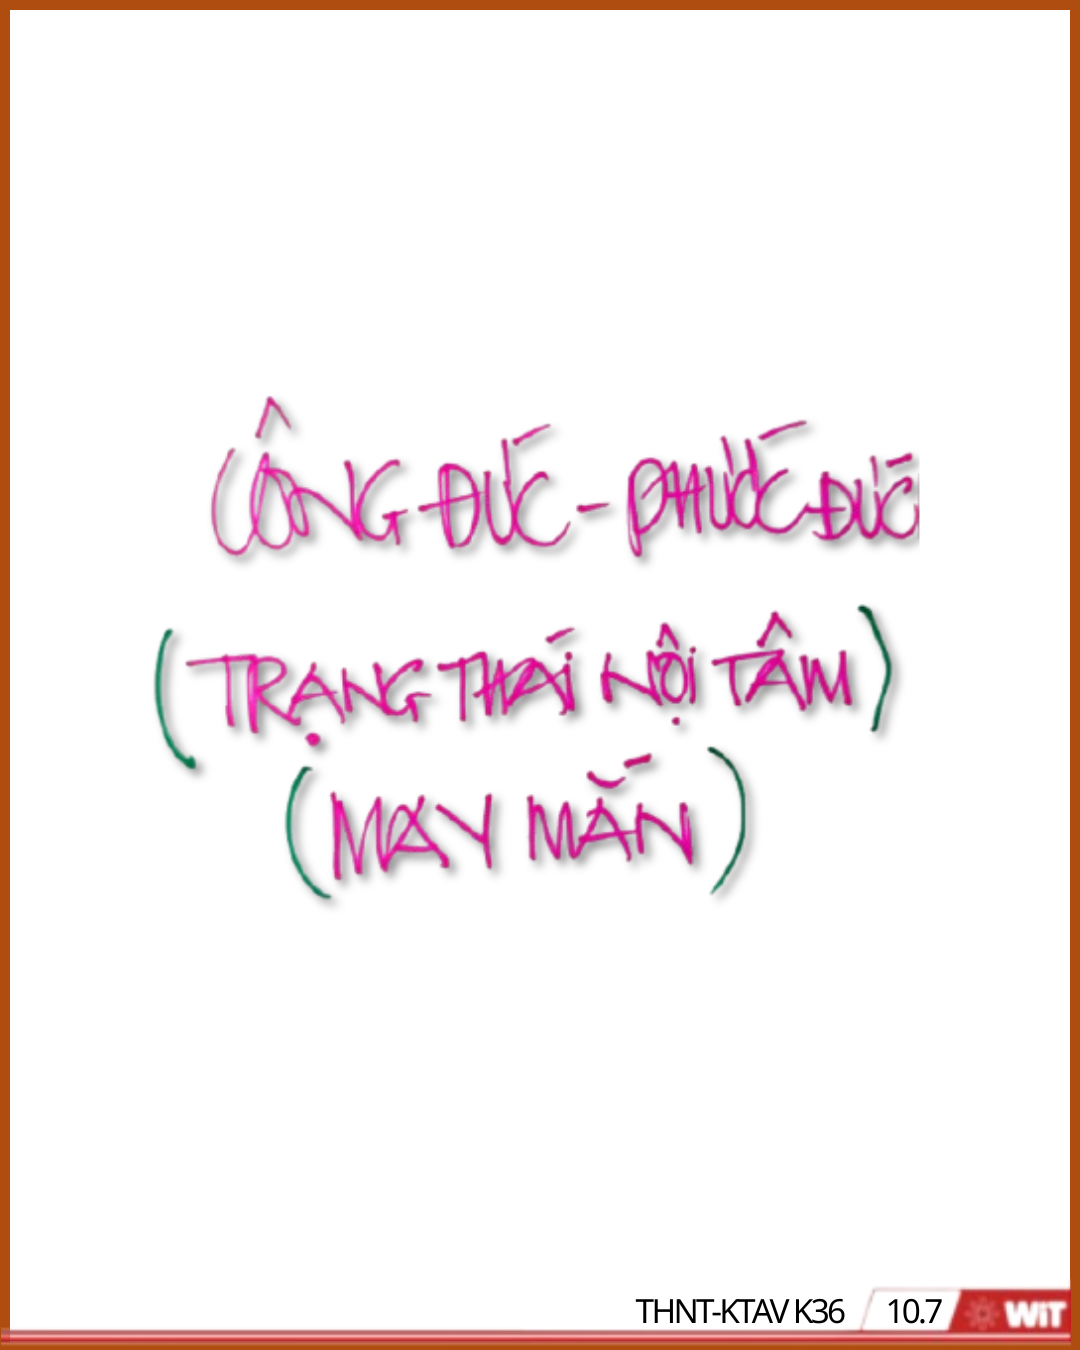 CÔNG ĐỨC - PHƯỚC ĐỨC
(TRẠNG THÁI NỘI TÂM)
(MAY MẮN)
THNT-KTAV K36 10.7 WiT